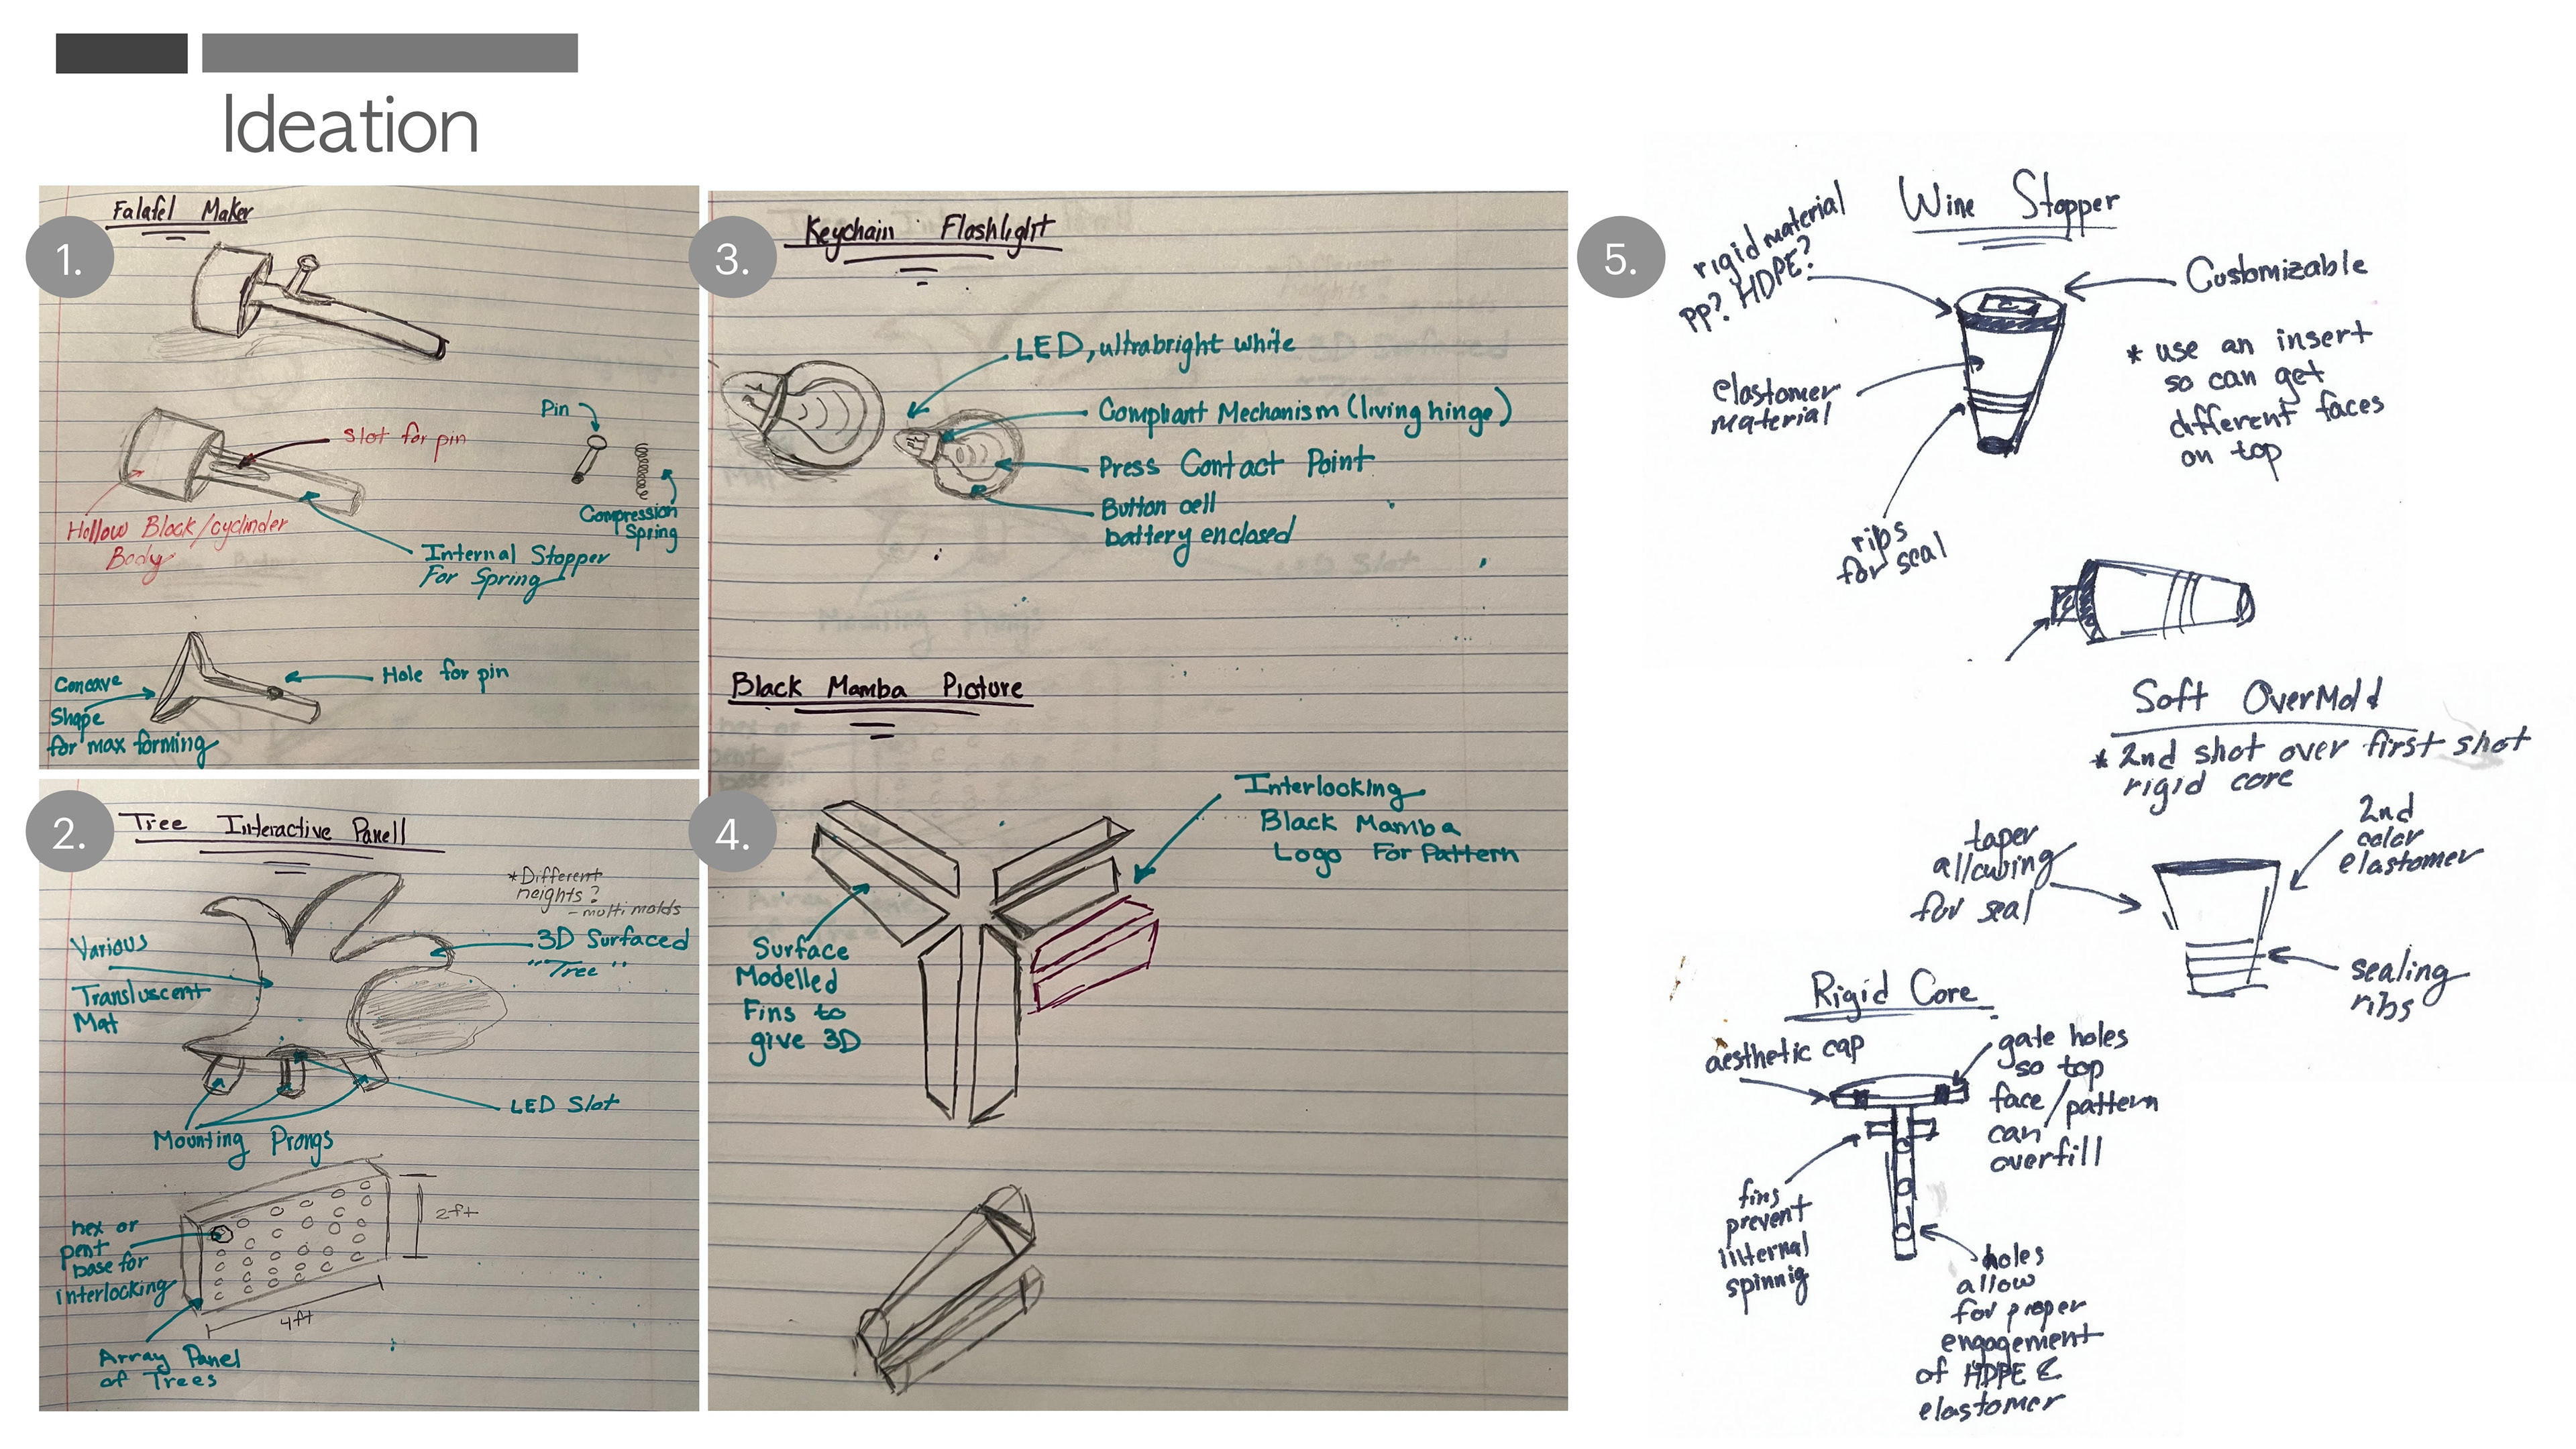 Ideation
1.
Falafel Maker
Slot for pin
Pin
Compression
Spring
Hollow Block/cyclinder
Body
Internal Stopper
For Spring
Concave
Shape
for max forming
Hole for pin
2.
Tree Interactive Panell
*Different
heights?
- multi molds
Various
Transluscent
Mat
3D Surfaced
"Tree"
LED Slot
Mounting Prongs
hex or
pent
base for
interlocking
2ft
4ft
Array Panel
of Trees
3.
Keychain Flashlight
LED, ultrabright white
Compliant Mechanism (living hinge)
Press Contact Point
Button cell
battery enclosed
4.
Black Mamba Picture
Interlocking
Black Mamba
Logo For Pattern
Surface
Modelled
Fins to
give 3D
5.
Wine Stopper
rigid material
PP? HDPE?
Customizable
* use an insert
so can get
different faces
on top
elastomer
material
ribs
for seal
Soft OverMold
* 2nd shot over first shot
rigid core
taper
allowing
for seal
2nd
color
elastomer
sealing
ribs
Rigid Core
aesthetic cap
gate holes
so top
face/pattern
can
overfill
fins
prevent
internal
spinnig
holes
allow
for proper
engagement
of HDPE &
elastomer